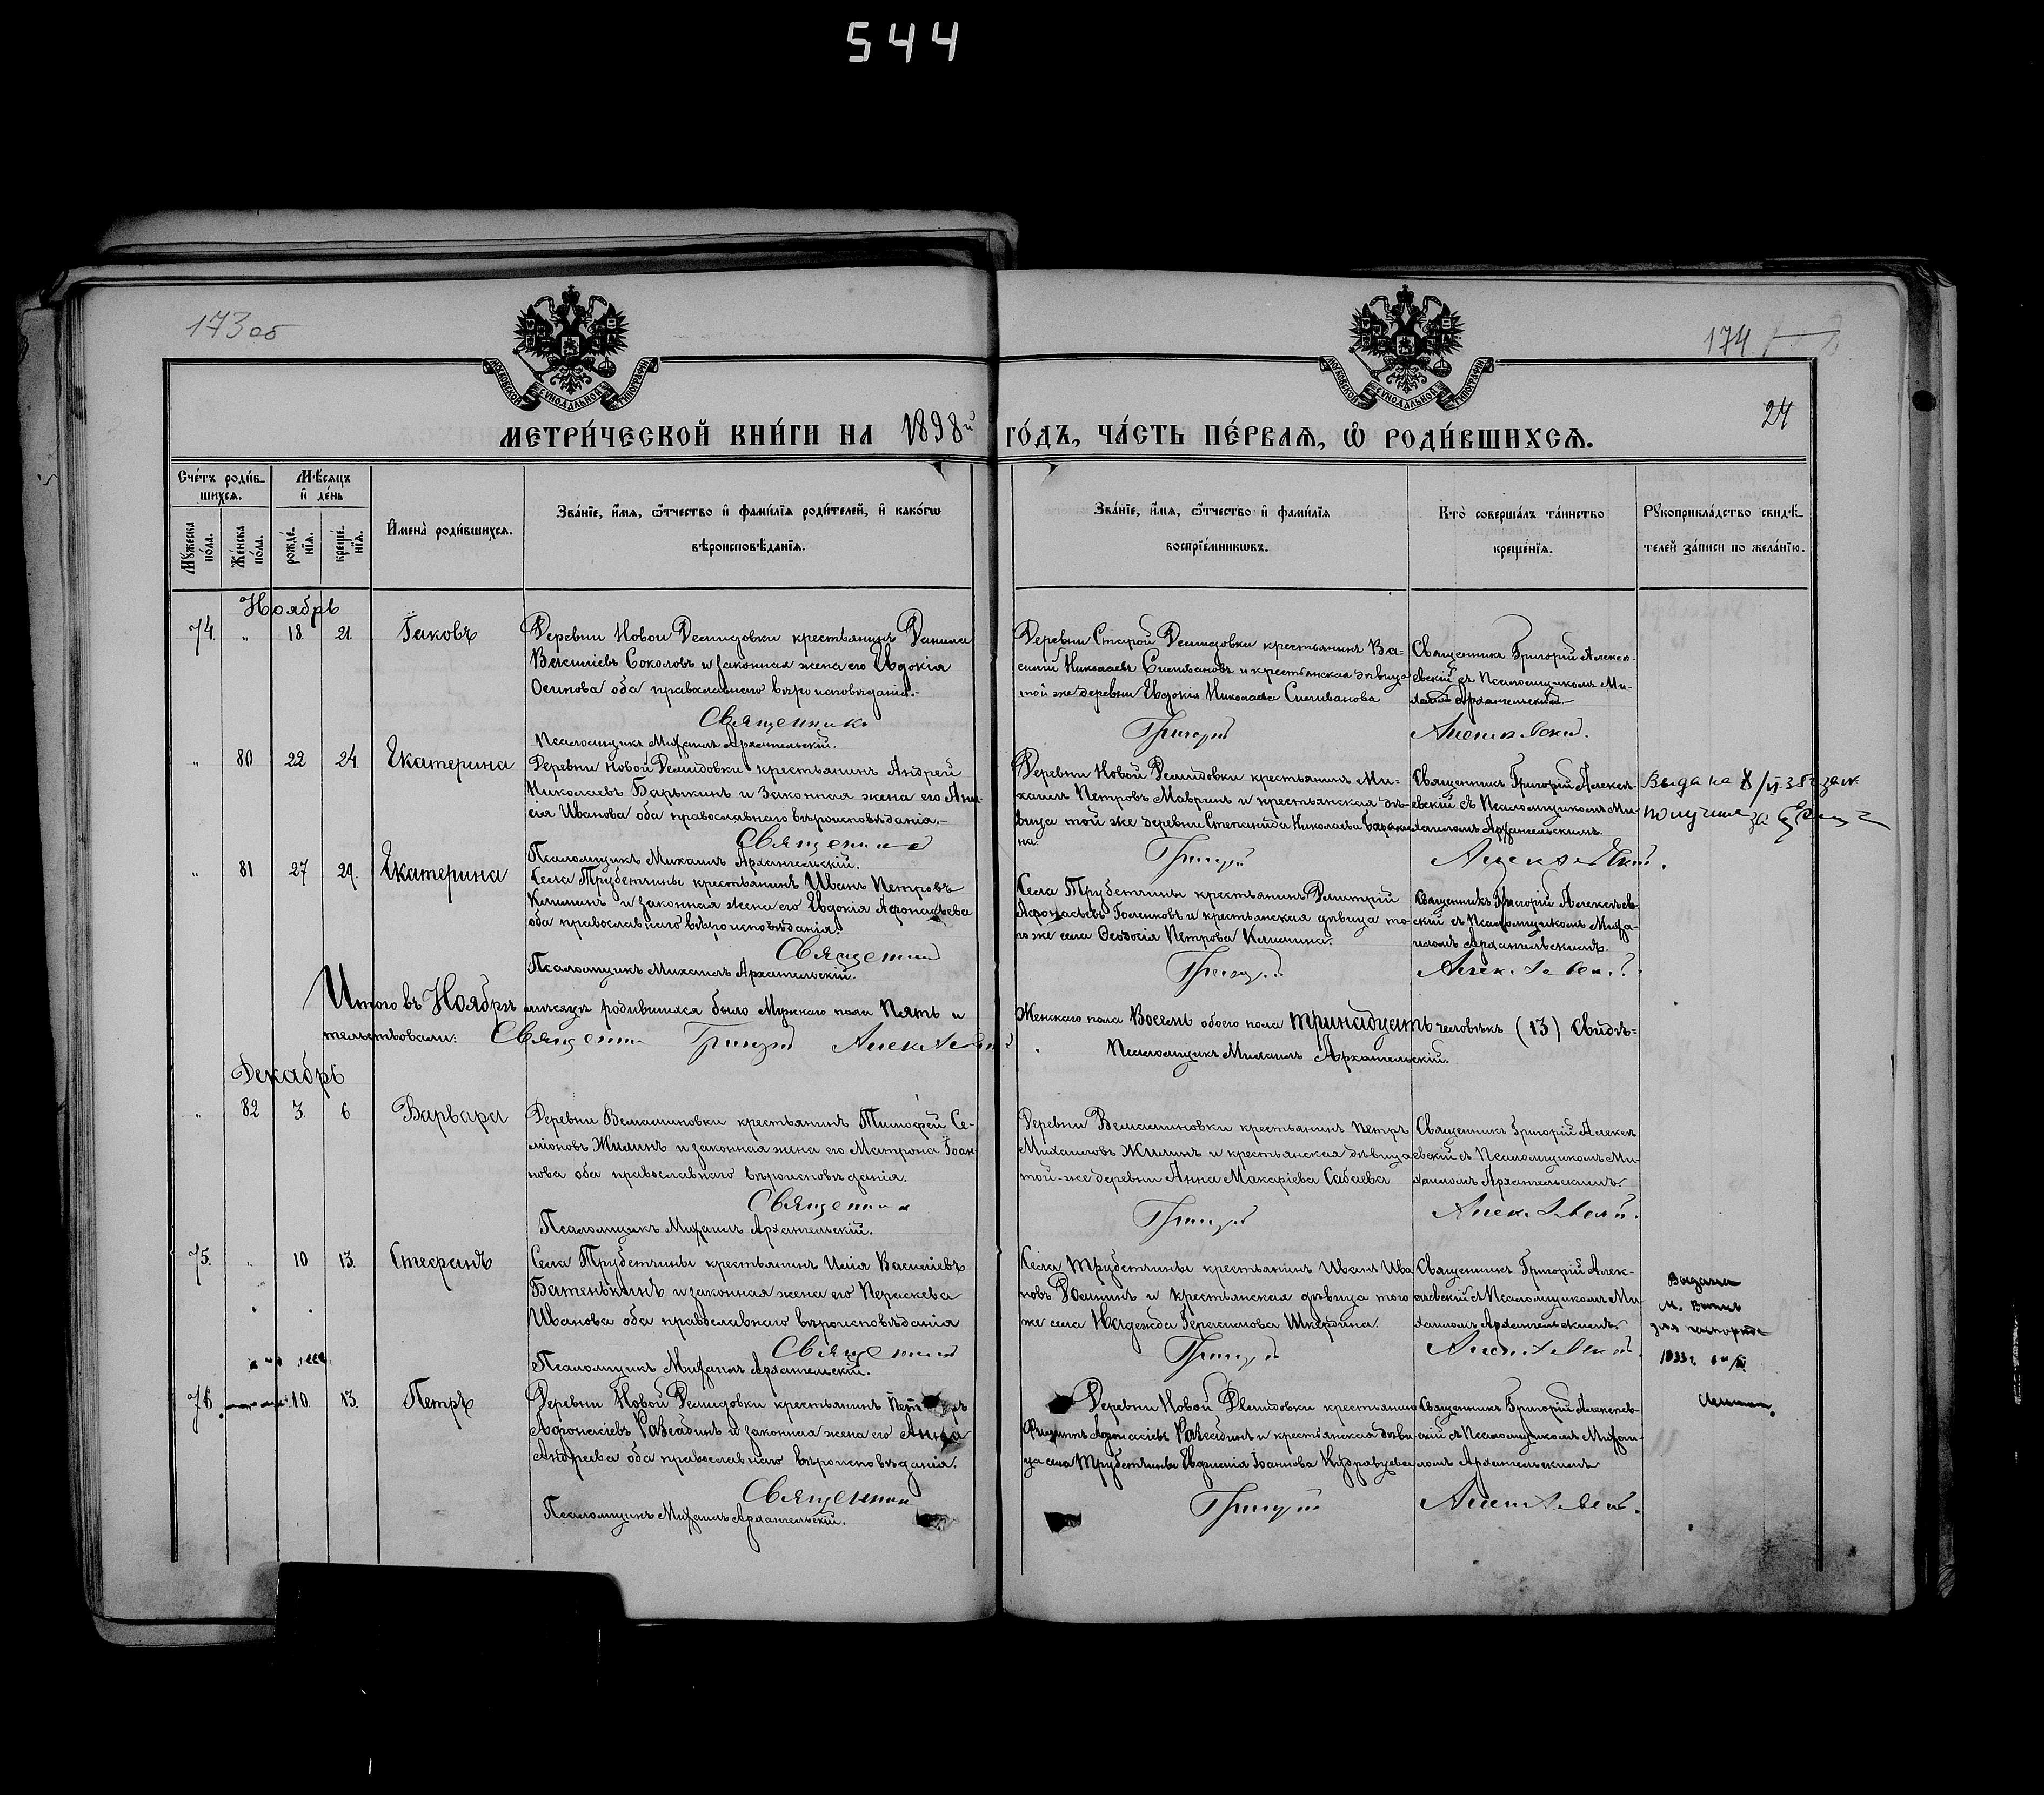 544
173об
174
24
МОСКОВСКОЙ СУНОДАЛЬНОЙ ТИПОГРАФІИ
МОСКОВСКОЙ СУНОДАЛЬНОЙ ТИПОГРАФІИ
МЕТРИ́ЧЕСКОЙ КНИ́ГИ НА 1898й ГО́ДЪ, ЧА́СТЬ ПЕ́РВАЯ, Ѡ РОДИ́ВШИХСЯ.
Сче́тъ роди́в-
шихся.
Мѣ́сяцъ
и де́нь
Му́жеска по́ла.
Же́нска по́ла.
рожде́-нїя.
креще́-нїя.
Имена̀ роди́вшихся.
Зва́нїе, и́мя, ѻ҆́тчество и фами́лїя роди́телей, и како́гѡ
вѣроисповѣ́данїя.
Зва́нїе, и́мя, ѻ҆́тчество и фами́лїя
воспрїе́мникѡвъ.
Кто̀ соверша́лъ та́инство
креще́нїя.
Рꙋкоприкла́дство свидѣ́-
телей за́писи по жела́нїю.
Ноябрь
74. „ 18. 21. Іаковъ
Деревни Новой Демидовки крестьянинъ Данила
Василіевъ Соколовъ и законная жена его Евдокія
Осипова оба православнаго вѣроисповѣданія.-
Священникъ
Псаломщикъ Михаилъ Архангельскій.
Деревни Старой Демидовки крестьянинъ Ва=
силій Николаевъ Селивановъ и крестьянская дѣвица
той же деревни Евдокія Николаева Селиванова
Григорій
Священникъ Григорій Алексе-
евскій съ Псаломщикомъ Ми-
хаиломъ Архангельскимъ.-
Алексѣевскій.
„ 80 22 24. Екатерина
Деревни Новой Демидовки крестьянинъ Андрей
Николаевъ Барыкинъ и законная жена его Ани-
сія Иванова оба православнаго вѣроисповѣданія.-
Священникъ
Псаломщикъ Михаилъ Архангельскій.
Деревни Новой Демидовки крестьянинъ Ми-
хаилъ Петровъ Мавринъ и крестьянская дѣ-
вица той же деревни Степанида Николаева Барыки
на.
Григорій
Священникъ Григорій Алексе-
евскій съ Псаломщикомъ Ми-
хаиломъ Архангельскимъ.
Алексѣевскій.
Выдана 8/VI
получил за
„ 81 27 29. Екатерина
Села Трубетчины крестьянинъ Иванъ Петровъ
Климинъ и законная жена его Евдокія Афонасьева
оба православнаго вѣроисповѣданія.
Священникъ
Псаломщикъ Михаилъ Архангельскій.
Села Трубетчины крестьянинъ Дмитрій
Афонасьевъ Голенковъ и крестьянская дѣвица то-
го же села Ѳеодосія Петрова Климина.
Григорій
Священникъ Григорій Алексѣев-
скій съ Псаломщикомъ Миха-
иломъ Архангельскимъ.
Алексѣевскій.
Итого въ Ноябрѣ мѣсяцѣ родившихся было Мужскаго пола Пять и Женскаго пола Восемь обоего пола тринадцать человѣкъ (13) Свидѣ=
тельствовали: Священникъ Григорій Алексѣевскій
Псаломщикъ Михаилъ Архангельскій.
Декабрь
„ 82 3. 6 Варвара
Деревни Вельяминовки крестьянинъ Тимофей Се-
міоновъ Жилинъ и законная жена его Матрона Іоан-
нова оба православнаго вѣроисповѣданія.
Священникъ
Псаломщикъ Михаилъ Архангельскій.
Деревни Вельяминовки крестьянинъ Петръ
Михаиловъ Жилинъ и крестьянская дѣвица
той-же деревни Анна Макаріева Сабаева
Григорій
Священникъ Григорій Алексе
евскій съ Псаломщикомъ Ми-
хаиломъ Архангельскимъ.
Алексѣевскій.
75. „ 10 13. Стефанъ
Села Трубетчины крестьянинъ Илія Василіевъ
Батенькинъ и законная жена его Параскева
Иванова оба православнаго вѣроисповѣданія
Священникъ
Псаломщикъ Михаилъ Архангельскій.
Села Трубетчины крестьянинъ Иванъ Ива
новъ и крестьянская дѣвица того
же села Надежда Герасимова Шкердина.
Григорій
Священникъ Григорій Алек-
сѣевскій съ Псаломщикомъ Ми
хаиломъ Архангельскимъ.
Алексѣевскій.
Выдана
для паспорта
1933 г.
76. 10. 13. Петръ
Деревни Новой Демидовки крестьянинъ Петръ
Афонасіевъ и законная жена его Анна
Андреева оба православнаго вѣроисповѣданія.
Священникъ
Псаломщикъ Михаилъ Архангельскій.
Деревни Новой Демидовки крестьянин
Филиппъ Афонасіевъ и крестьянская дѣви-
ца села Трубетчины Евфимія Іоаннова Кудрявцева
Григорій
Священникъ Григорій Алексѣев-
скій съ Псаломщикомъ Михаи-
ломъ Архангельскимъ
Алексѣевскій.